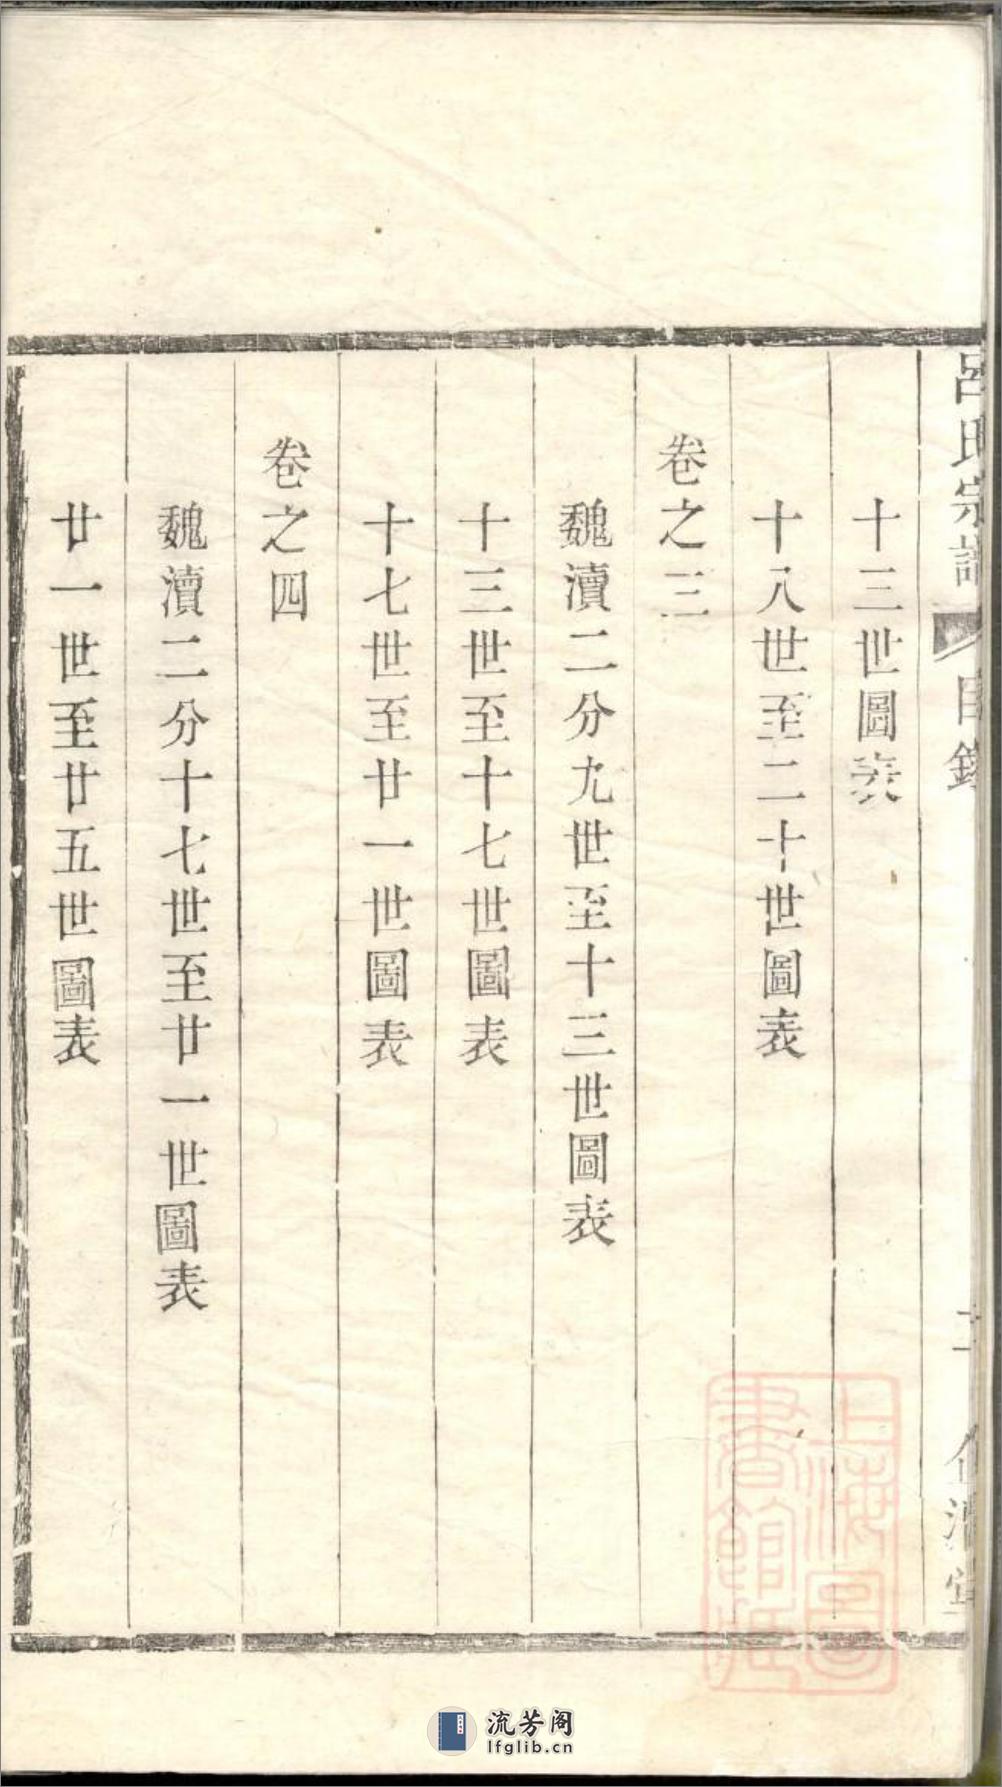 呂氏宗譜 目錄
十三世圖表
十八世至二十世圖表
卷之三
魏瀆二分九世至十三世圖表
十三世至十七世圖表
十七世至廿一世圖表
卷之四
魏瀆二分十七世至廿一世圖表
廿一世至廿五世圖表
上海圖書館藏
流芳阁
lfglib.cn